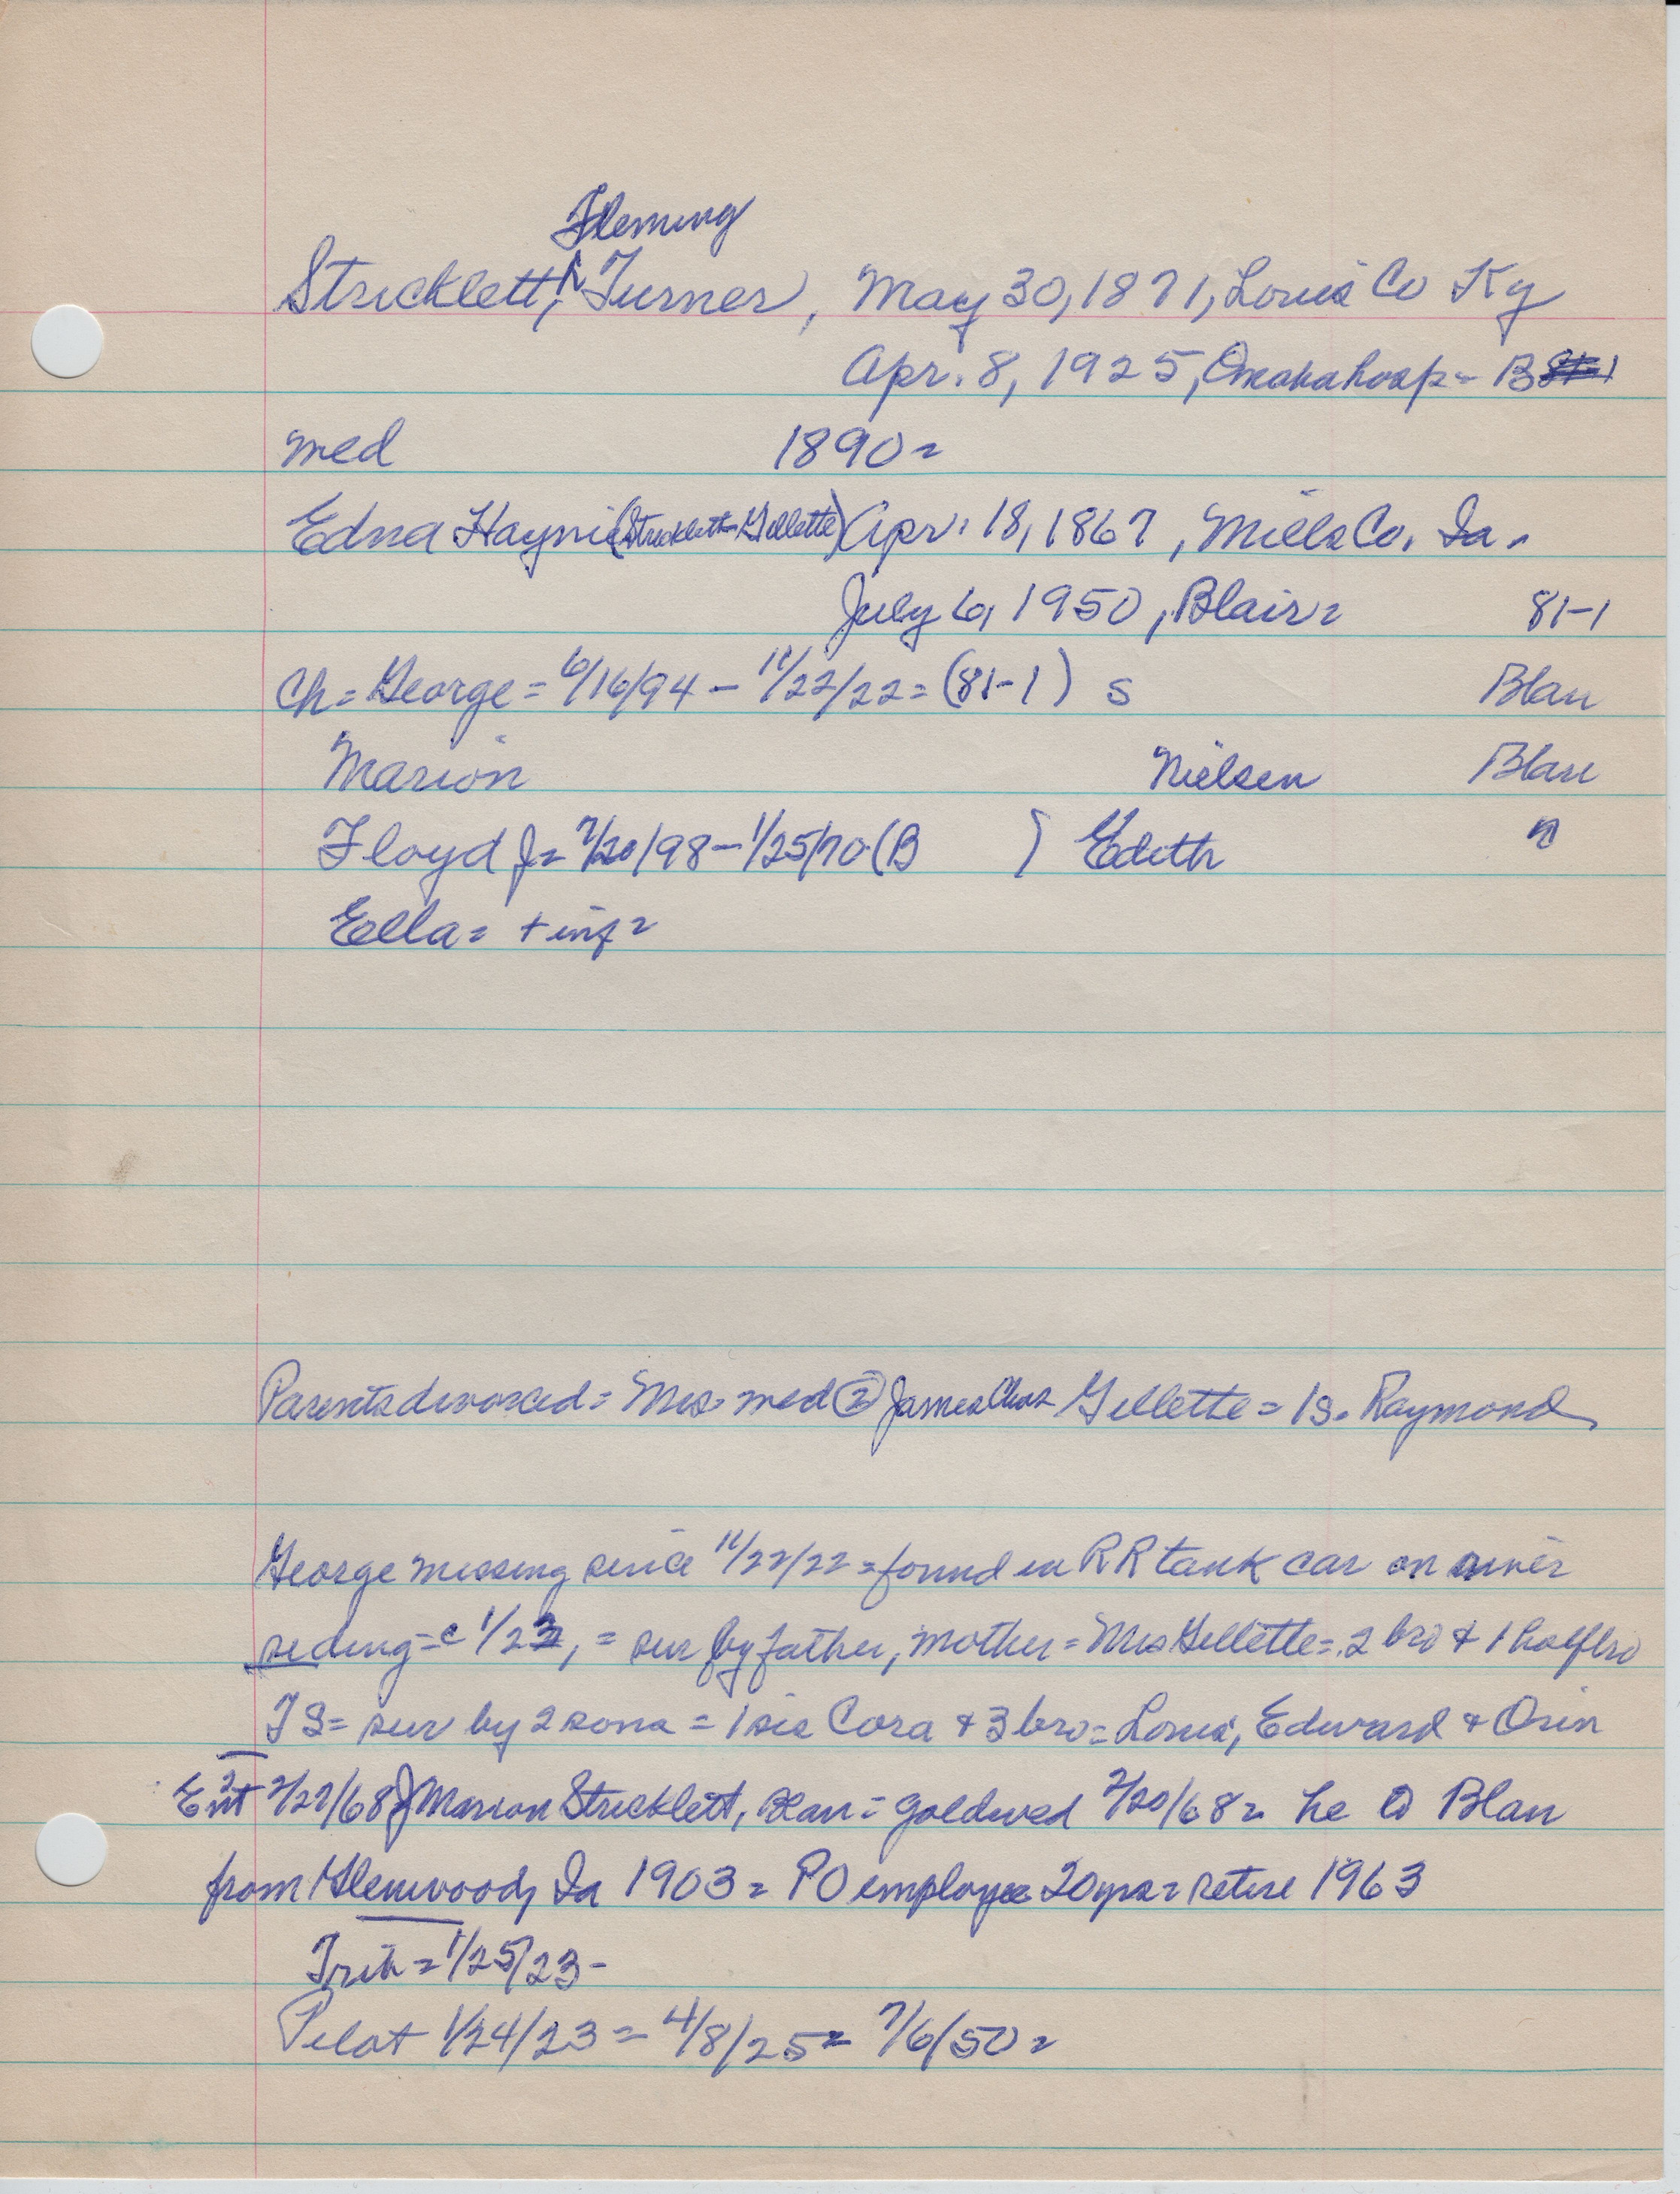 Fleming
Stricklett, ^ Turner, May 30, 1871, Louis Co Ky
Apr. 8, 1925, Omaha hosp = B
med 1890 =
Edna Haynie (Stricklett-Gillette) Apr. 18, 1867, Mills Co. Ia.
July 6, 1950, Blair = 81-1
Ch = George = 6/16/94 - 11/22/22 = (81-1) s Blair
Marion Nielsen Blair
Floyd J = 7/20/98 - 1/25/70 (B ) Edith "
Ella = + inf =
Parents divorced = Mrs. med ② James Chas Gillette = 1s. Raymond
George missing since 11/22/22 = found in RR tank car on river
siding = c 1/23, = sur by father, mother = Mrs Gillette = 2 bro & 1 half bro
TS = sur by 2 sons = 1 sis Cora & 3 bro = Louis, Edward & Orin
Ent 2/27/68 J Marion Stricklett, Blair = gold wed 2/20/68 = he @ Blair
from Glenwood, Ia 1903 = PO employee 20 yrs = retire 1963
Trib = 1/25/23 -
Pilot 1/24/23 = 4/8/25 = 7/6/50 =